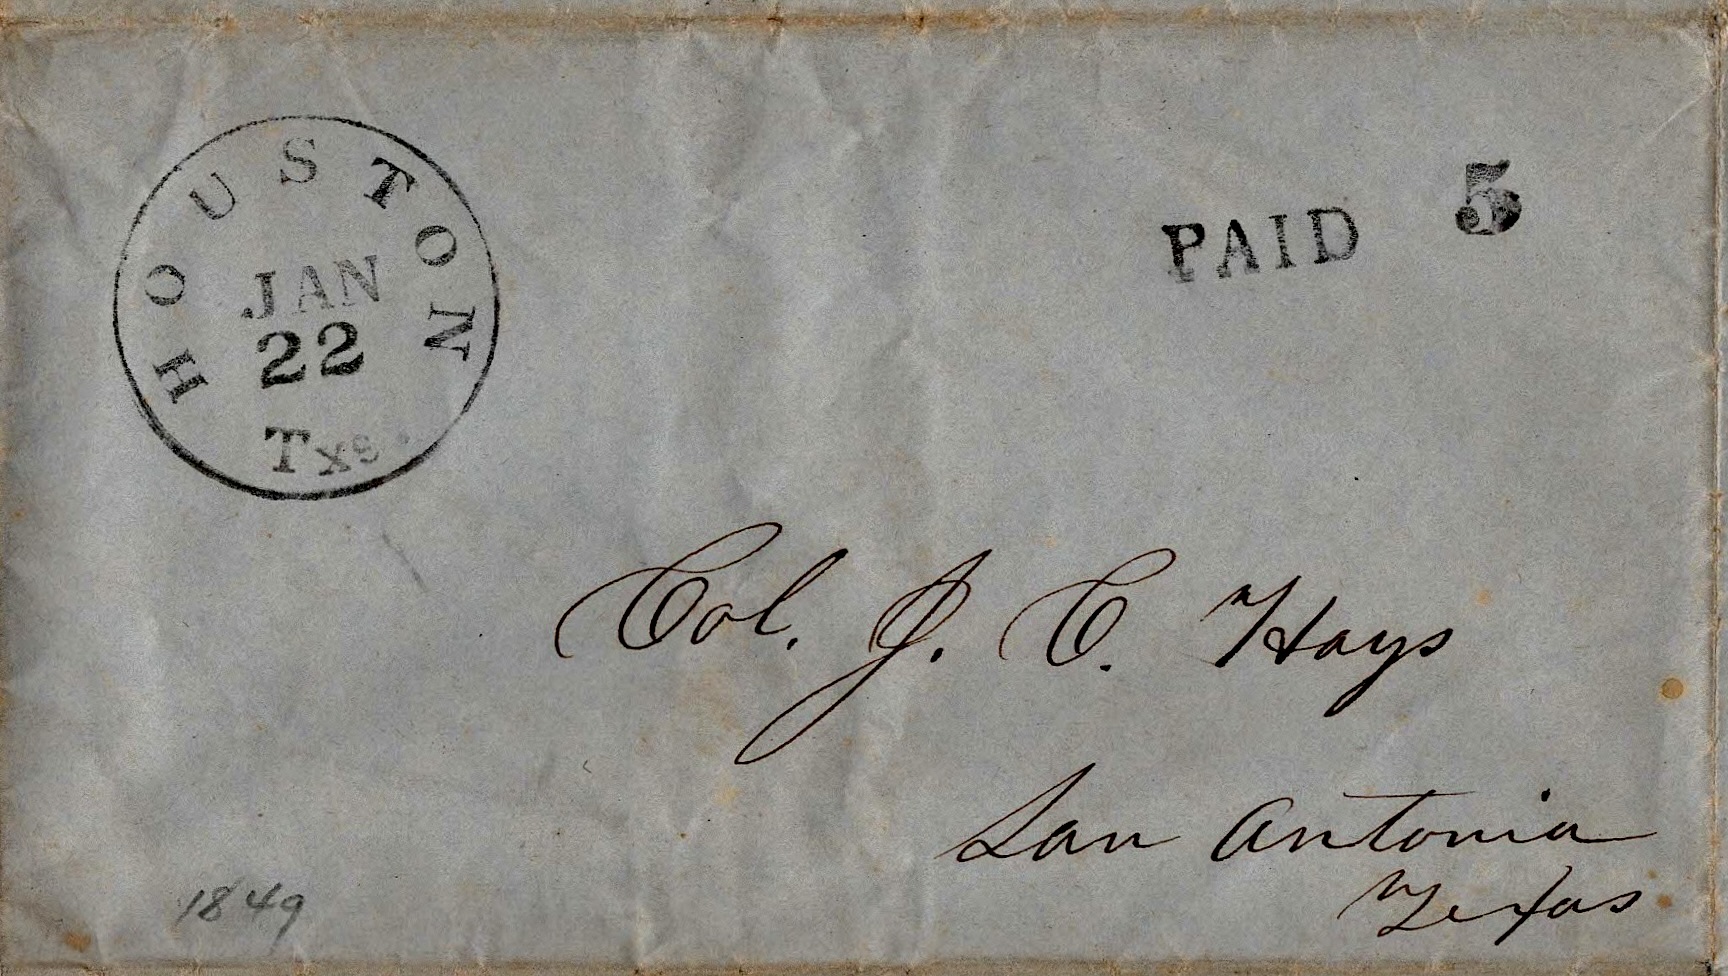 HOUSTON
JAN
22
Txs.
PAID 5
Col. J. C. Hays
San Antonia
Texas
1849